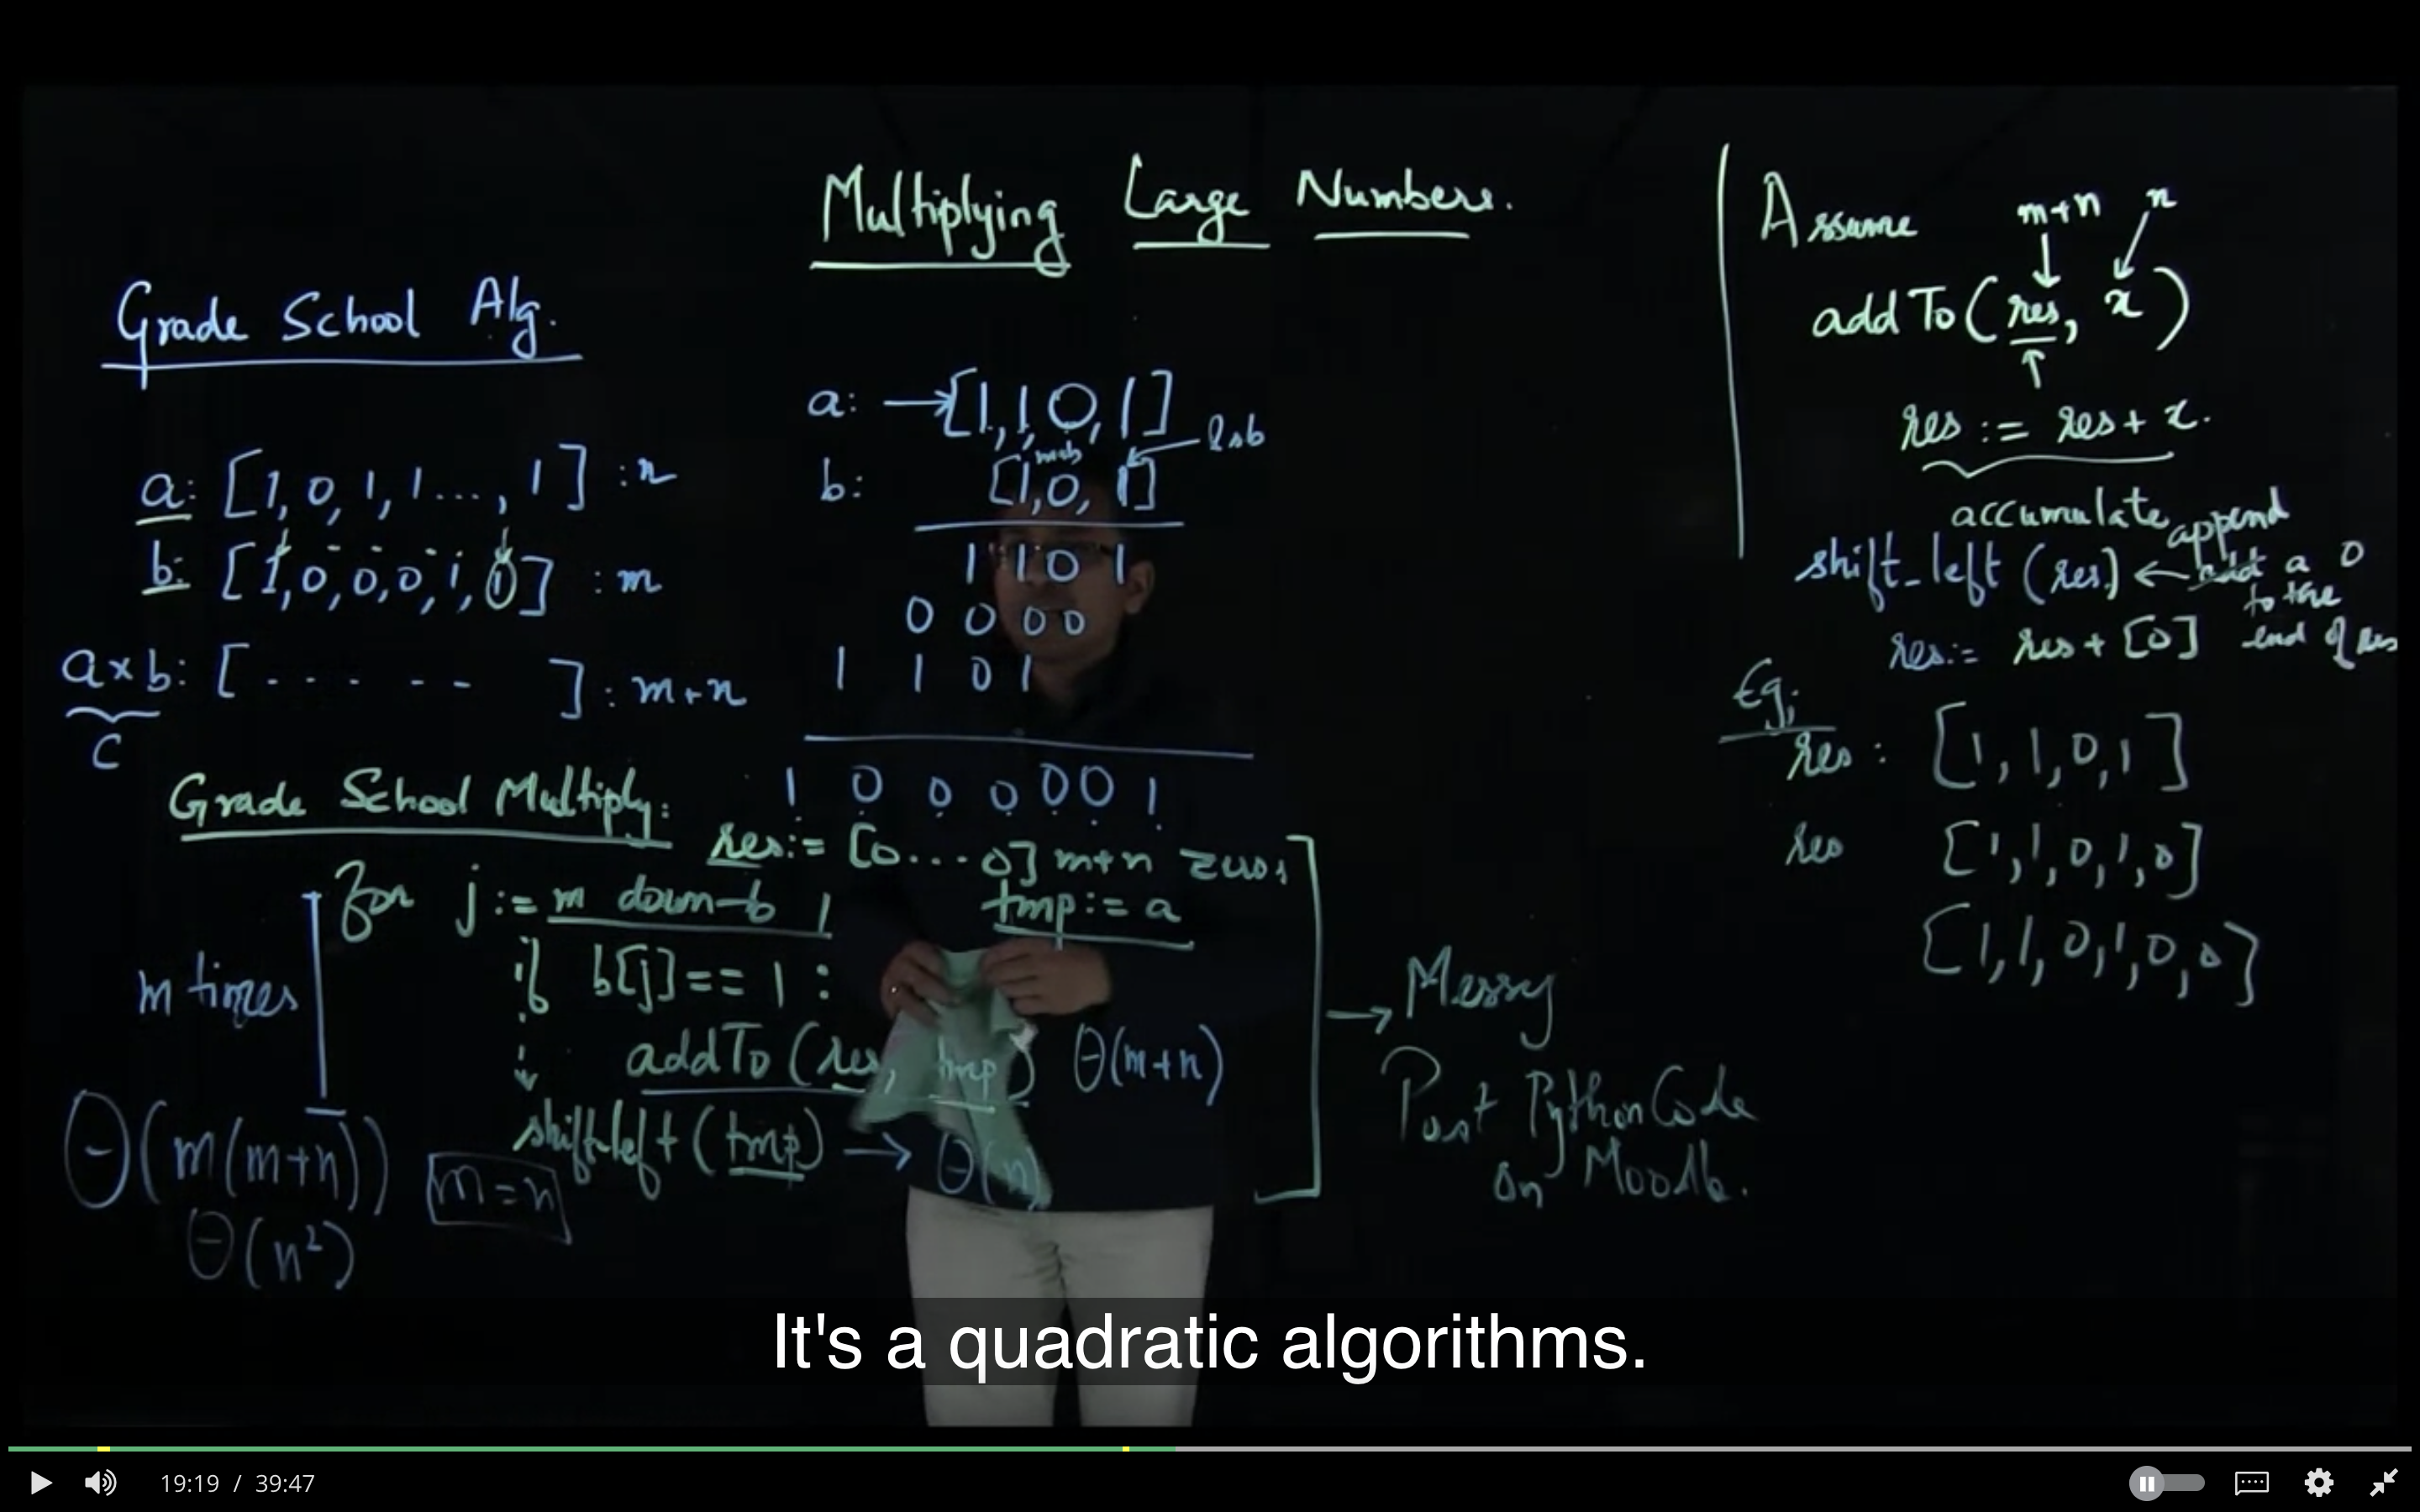 Multiplying Large Numbers.
Grade School Alg.
a: [1, 0, 1, 1 ..., 1] : n
b: [1, 0, 0, 0, 1, 0] : m
a×b: [ - - - - - ] : m+n
c
a: → [1, 1, 0, 1]
msb ← lsb
b: [1, 0, 1]
1 1 0 1
0 0 0 0
1 1 0 1
1 0 0 0 0 0 1
Grade School Multiply:
res:= [0...0] m+n zeros
tmp:= a
for j := m down to 1
if b[j] == 1 :
addTo (res, tmp) Θ(m+n)
shift-left (tmp) → Θ(n)
m times
Θ(m(m+n))
m = n
Θ(n²)
→ Messy
Post Python Code
on Moodle.
Assume
m+n n
addTo (res, x)
res := res + x.
accumulate
shift_left (res) ← append a 0
to the
end of res
res:= res + [0]
Eg;
res : [1, 1, 0, 1]
res [1, 1, 0, 1, 0]
[1, 1, 0, 1, 0, 0]
It's a quadratic algorithms.
19:19 / 39:47